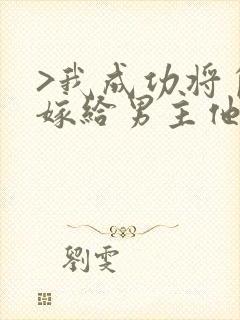 >我成功将
嫁给男主他
劉雯